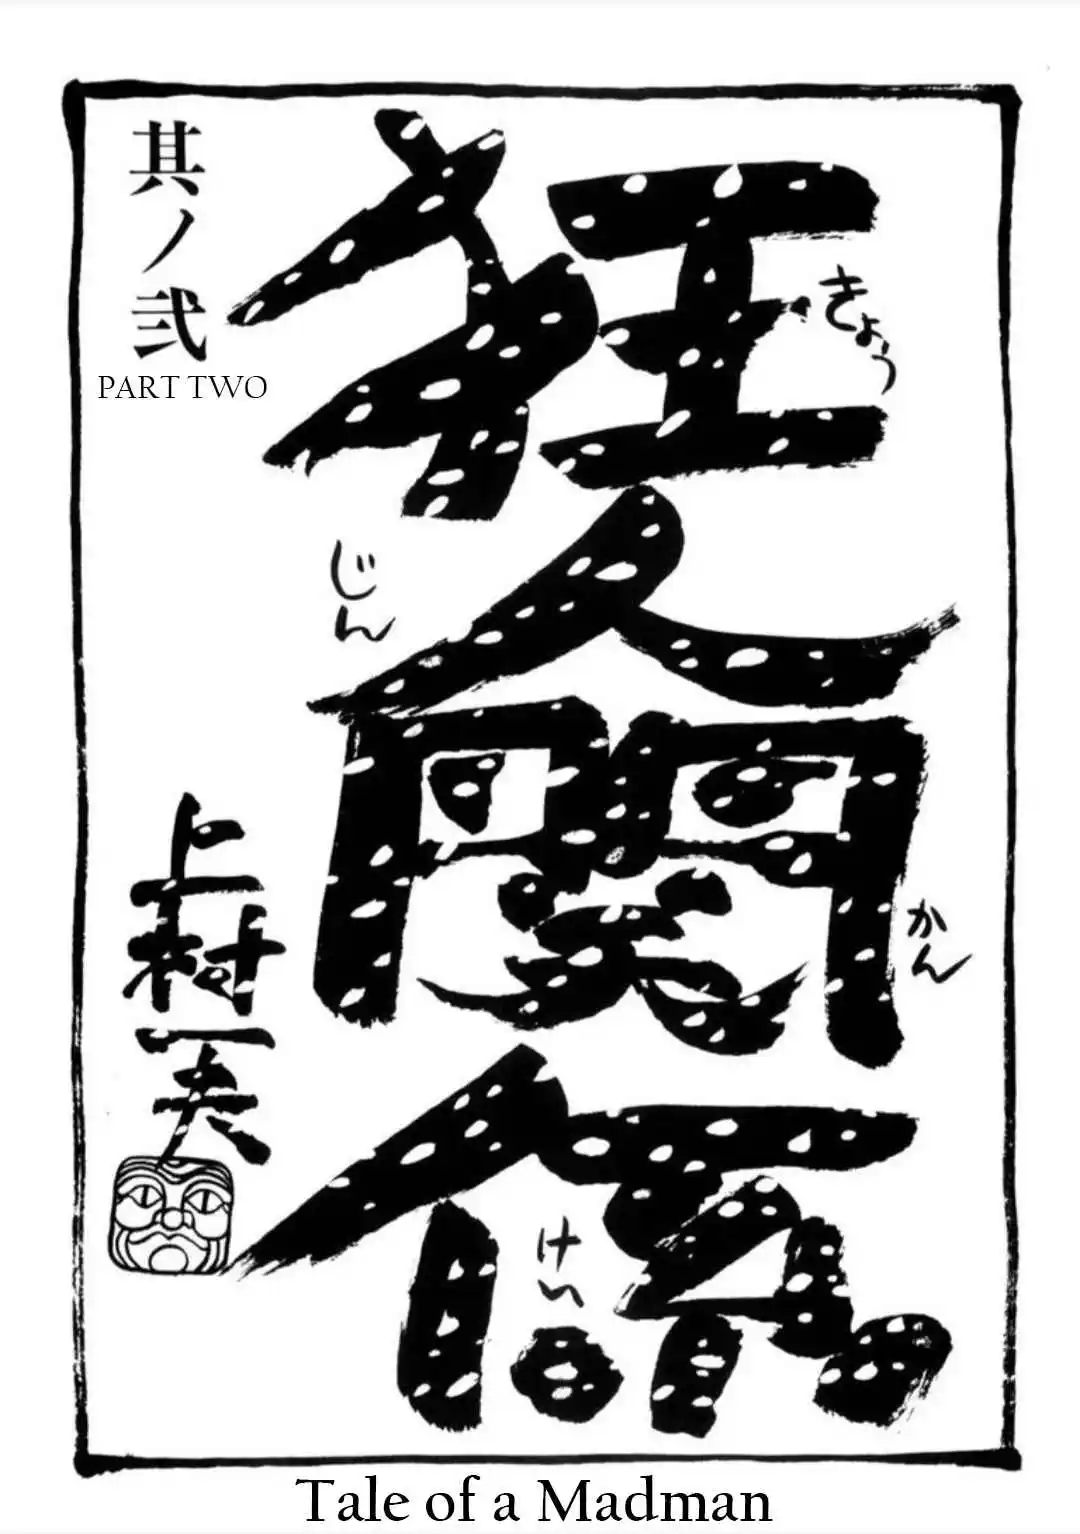 狂人関係
きょう
じん
かん
けい
其ノ弐
PART TWO
上村一夫
Tale of a Madman